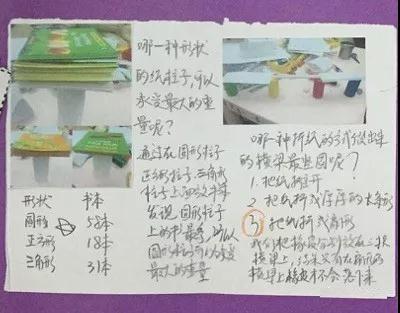 哪一种形状
的纸柱子,可以
承受最大的重
量呢?
通过在圆形柱子
正方形柱子,三角形
柱子上面放书本
发现圆形柱子
上的书最多,所以
圆形柱子可以承受
最大的重量
形状 书本
圆形 52本
正方形 18本
三角形 31本
哪一种折纸的方式做出来
的横梁最坚固呢?
1. 把纸打开
2. 把纸折成厚厚的长条形
3. 把纸折成扇形
我们把积木分别放在三根
横梁上,结果只有扇形的
横梁上积木不会落下来